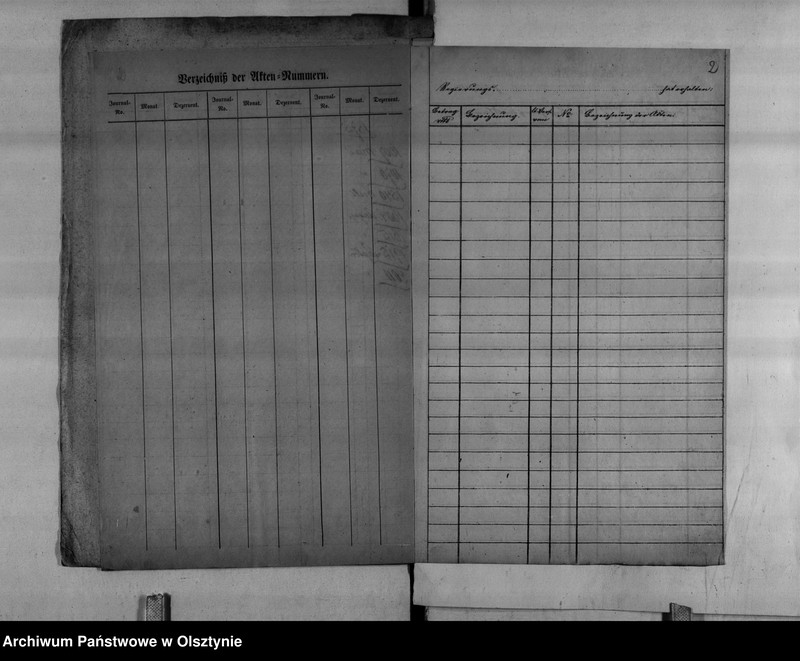 Verzeichniß der Akten-Nummern.
Journal-No. Monat. Dezernent. Journal-No. Monat. Dezernent. Journal-No. Monat. Dezernent.
2
Regierungs. hat erhalten:
Bezeichnung No Bezeichnung der Akten
Archiwum Państwowe w Olsztynie